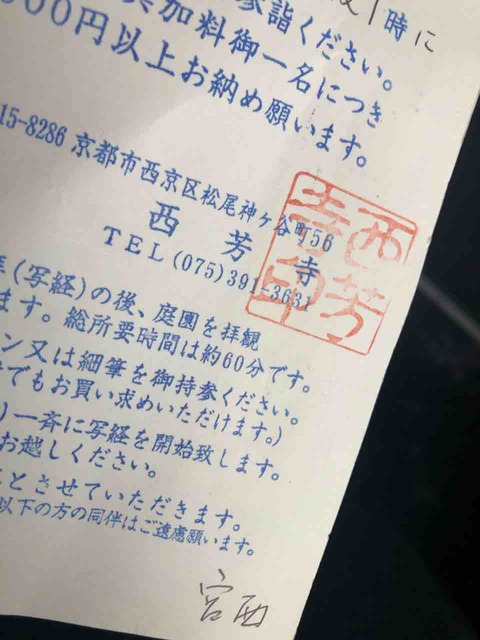 1時に
参詣ください。
冥加料御一名につき
000円以上お納め願います。
15-8286 京都市西京区松尾神ヶ谷町56
西芳寺
TEL(075)391-3631
西芳寺印
(写経)の後、庭園を拝観
ます。総所要時間は約60分です。
ン又は細筆を御持参ください。
でもお買い求めいただけます。)
)一斉に写経を開始致します。
お越しください。
とさせていただきます。
以下の方の同伴はご遠慮願います。
宮西